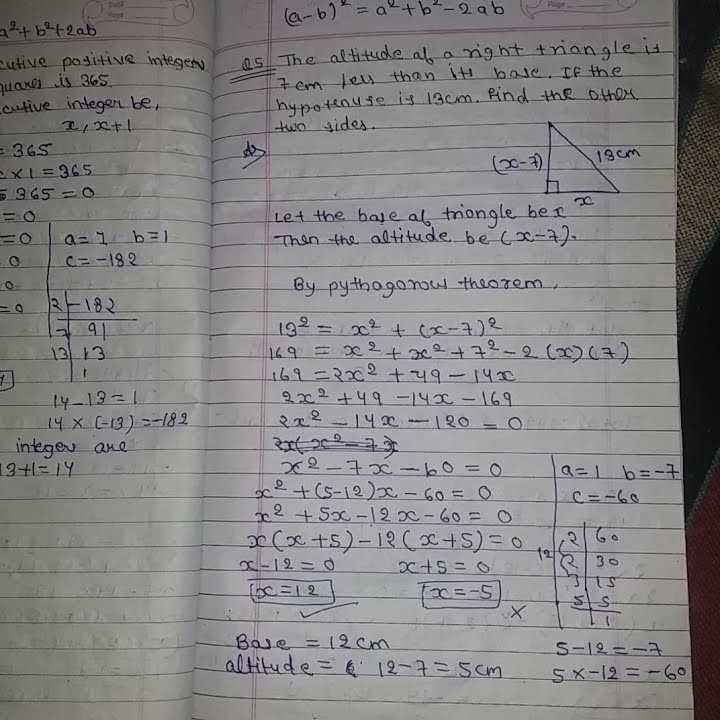 a²+b²+2ab
cutive positive integers
quares is 365.
cutive integer be,
x, x+1
= 365
x 1 = 365
365 = 0
= 0
= 0
0
0
= 0
a=1 b=1
c=-182
2 -182
7 91
13 13
1
14-13=1
14 × (-13) = -182
integers are
13+1=14
(a-b)² = a²+b²-2ab
Q5 The altitude of a right triangle is
7cm less than its base. If the
hypotenuse is 13cm. Find the other
two sides.
(x-7)
13cm
x
Let the base of triangle be x
Then the altitude be (x-7).
By pythagorous theorem,
13² = x² + (x-7)²
169 = x² + x² + 7² - 2(x)(7)
169 = 2x² + 49 - 14x
2x² + 49 - 14x - 169
2x² - 14x - 120 = 0
2x(x² - 7x
x² - 7x - 60 = 0
x² + (5-12)x - 60 = 0
x² + 5x - 12x - 60 = 0
x(x+5) - 12(x+5) = 0
x-12 = 0 x+5 = 0
x=12 x=-5
✓ ×
Base = 12cm
altitude = 12-7 = 5cm
a=1 b=-7
c=-60
12
2 60
2 30
3 15
5 5
1
5-12=-7
5×-12=-60